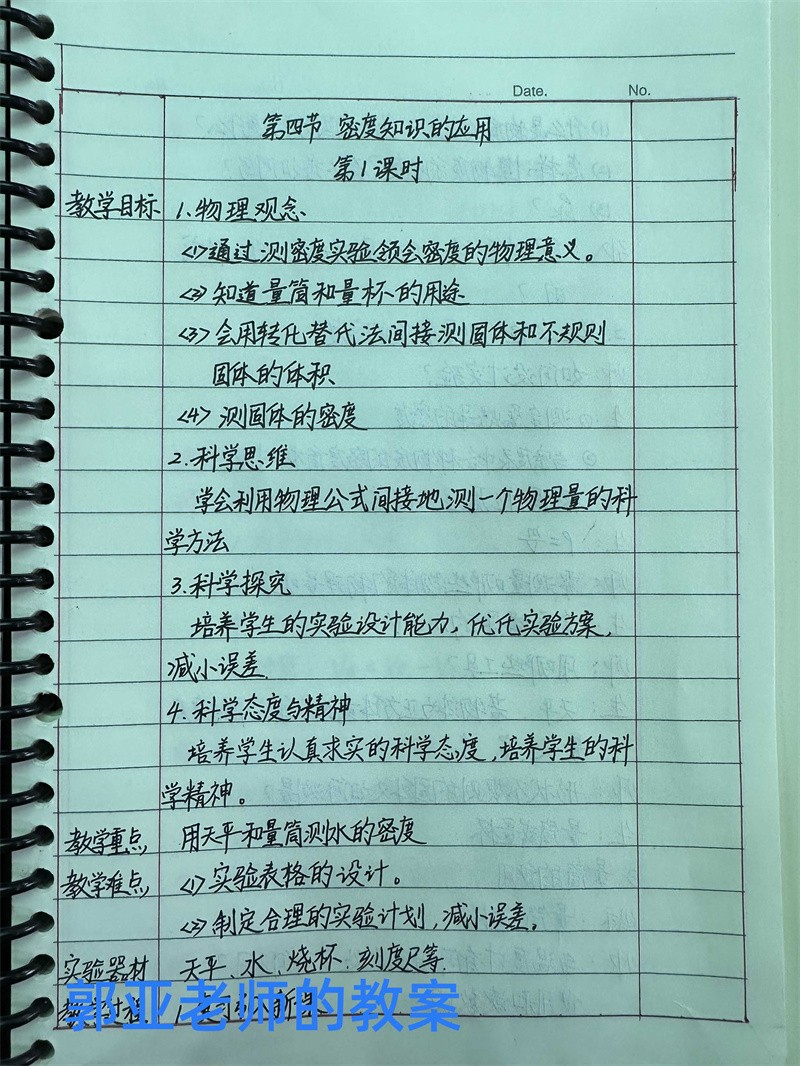 Date. No.
第四节 密度知识的应用
第1课时
教学目标 1.物理观念
<1>通过测密度实验领会密度的物理意义。
<2>知道量筒和量杯的用途
<3>会用转化替代法间接测固体和不规则
固体的体积
<4>测固体的密度
2.科学思维
学会利用物理公式间接地测一个物理量的科
学方法
3.科学探究
培养学生的实验设计能力,优化实验方案,
减小误差
4.科学态度与精神
培养学生认真求实的科学态度,培养学生的科
学精神。
教学重点 用天平和量筒测水的密度
教学难点 <1>实验表格的设计。
<2>制定合理的实验计划,减小误差。
实验器材 天平、水、烧杯、刻度尺等.
教学过程
郭亚老师的教案